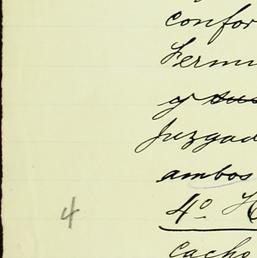 confor
Fermi
y sus
Juzgad
ambos
4
4º H
cacho